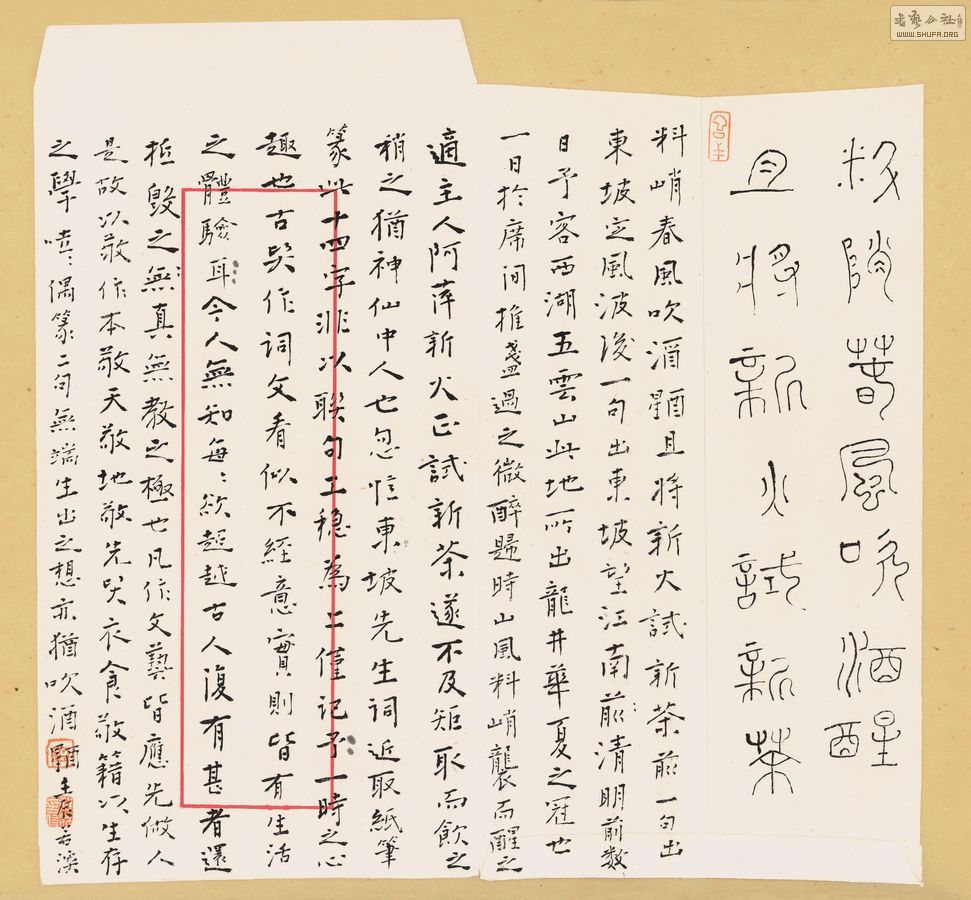 料峭春風吹酒醒
且將新火試新茶
料峭春風吹酒醒且將新火試新茶前一句出
東坡定風波後一句出東坡望江南前清明前數
日予客西湖五雲山此地所出龍井華夏之冠也
一日於席间推盞過之微醉歸時山風料峭襲而醒之
適主人阿萍新火正試新茶遂不及矩取而飲之
稍之猶神仙中人也忽憶東坡先生詞近取紙筆
篆此十四字非以聯句工穩為上僅記予一時之心
趣也古吳作詞文看似不經意實則皆有生活
之體驗耳今人無知每欲超越古人復有甚者還
詆毀之無真無教之極也凡作文藝皆應先做人
是故以敬作本敬天敬地敬先吳衣食敬籍以生存
之學嘻偶篆二句無端生出之想亦猶吹酒醒壬辰
WWW.SHUFA.ORG